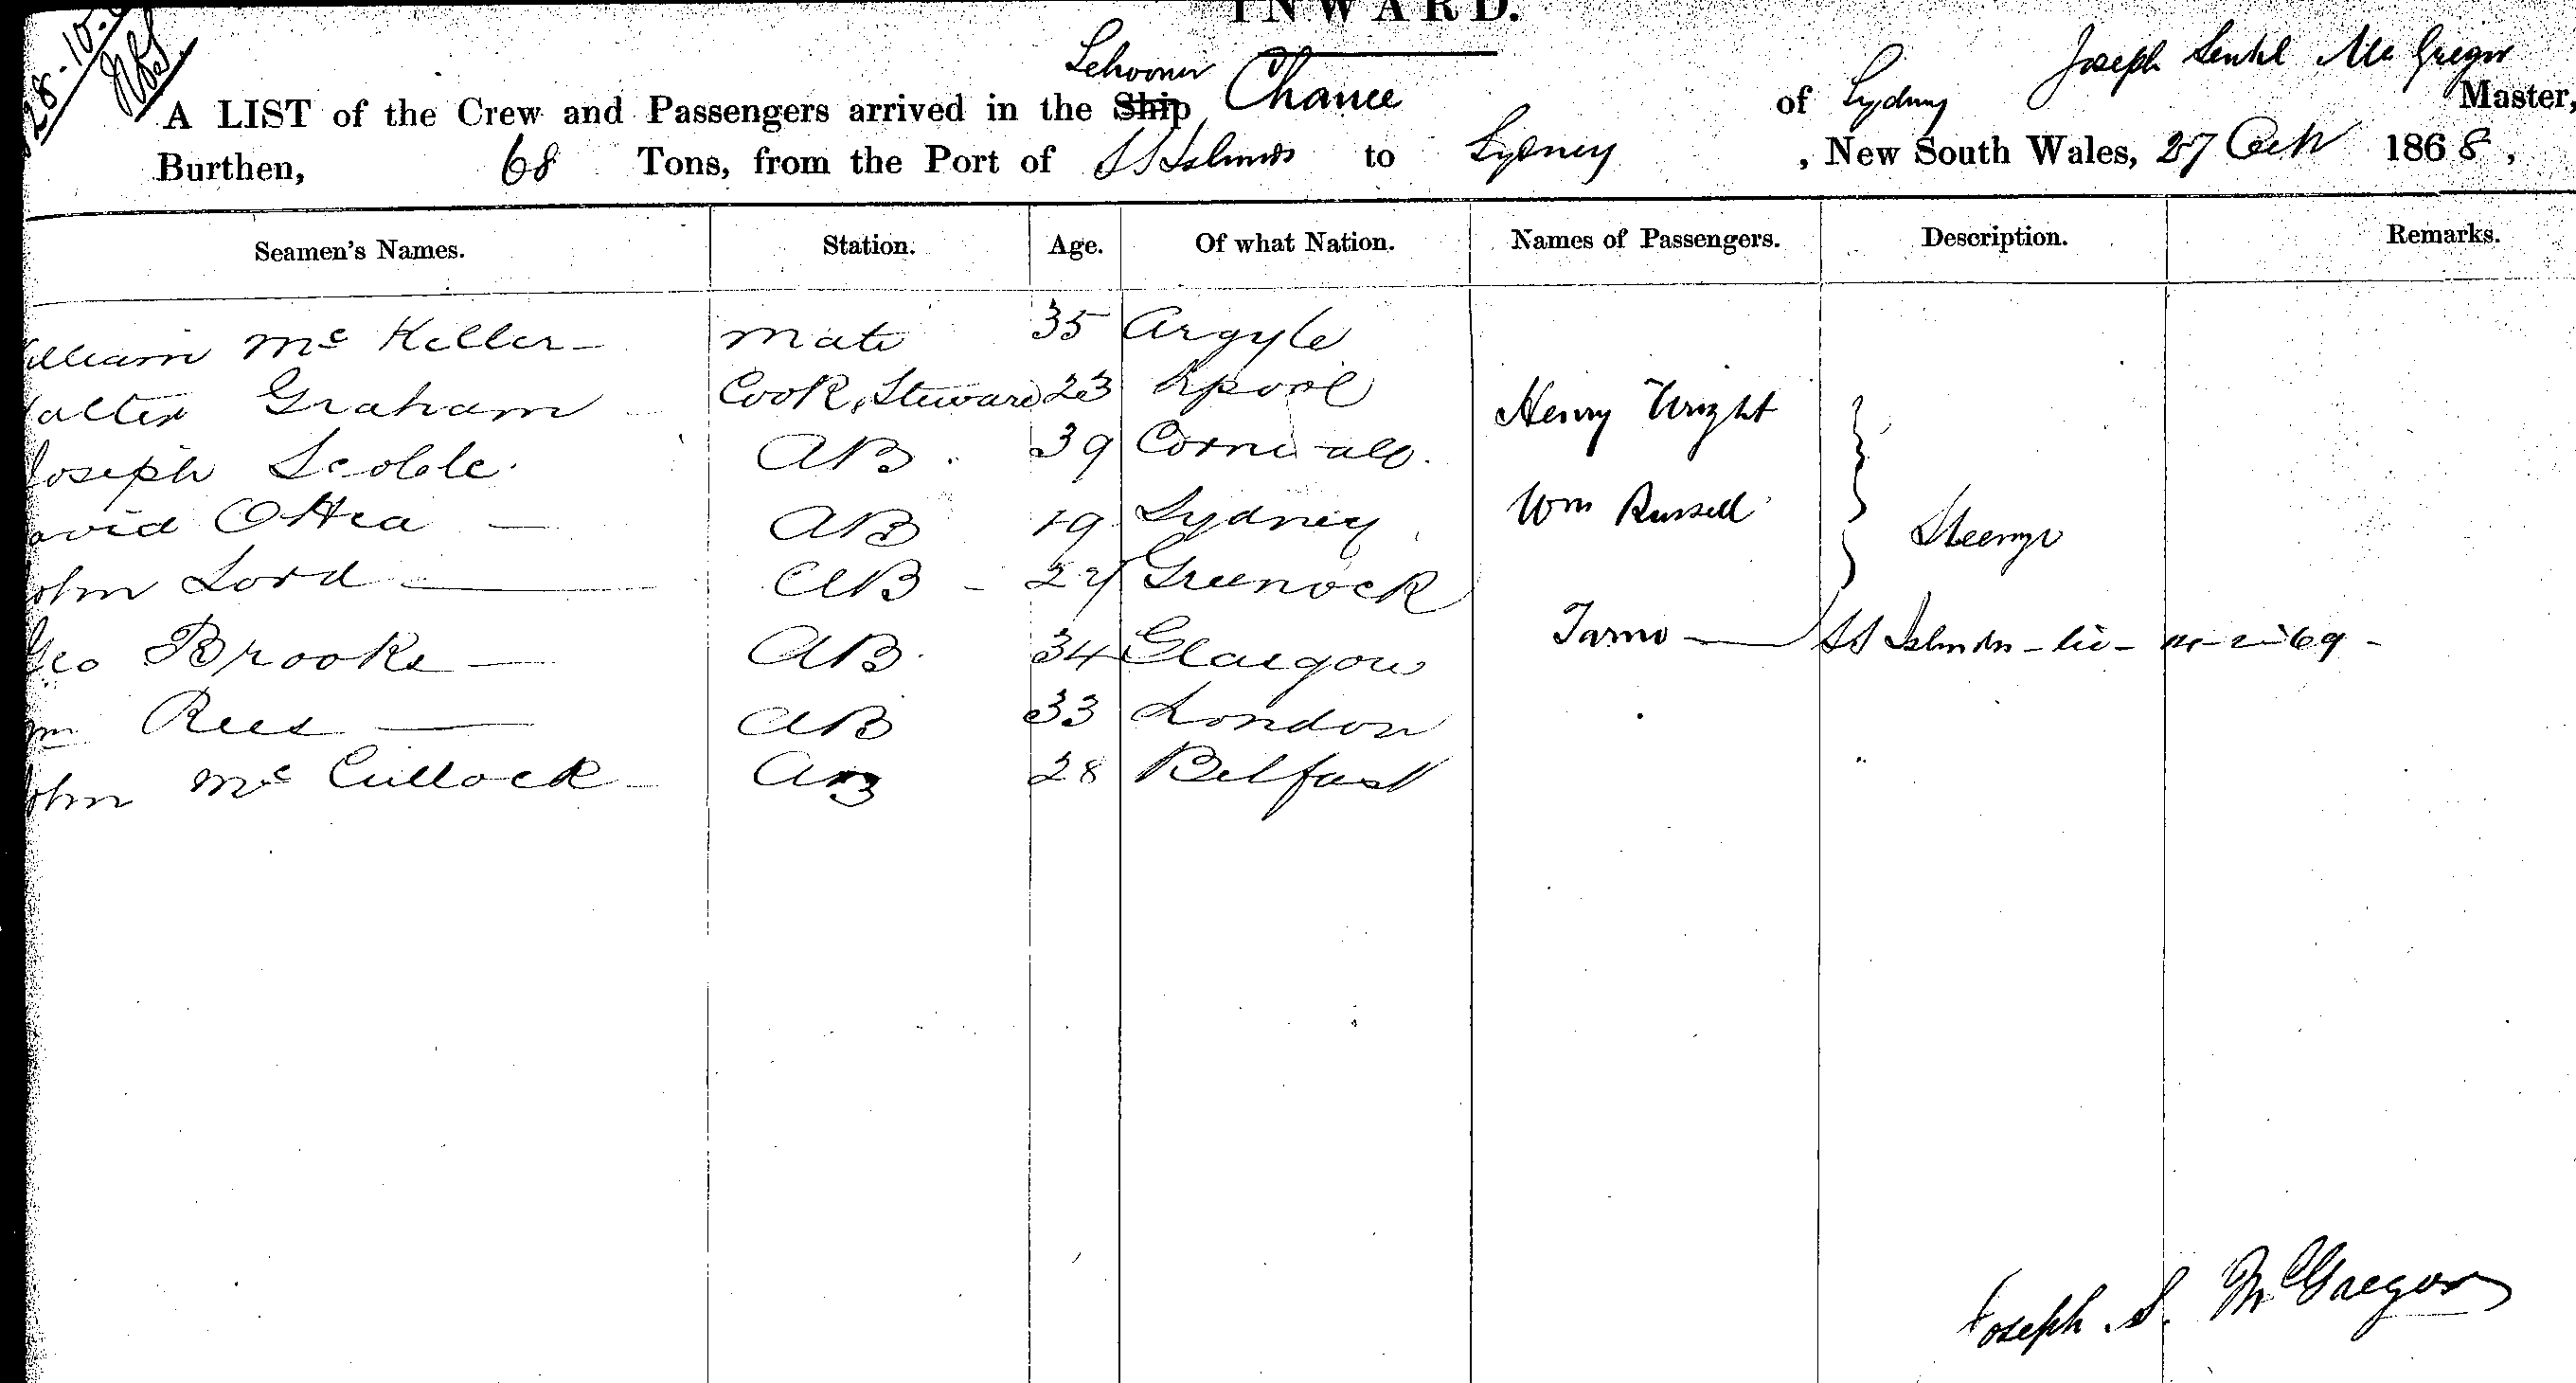 INWARD.
28-10-
Schooner Chance of Sydney Joseph McGregor
A LIST of the Crew and Passengers arrived in the Ship Master,
Burthen, 68 Tons, from the Port of SS Islands to Sydney , New South Wales, 27 Octr 1868,
Seamen's Names. Station. Age. Of what Nation. Names of Passengers. Description. Remarks.
illiam Mc Keller Mate 35 Argyle
alter Graham Cook, Steward 23 Lpool Henry Wright
Joseph Scoble AB 39 Cornwall
avid OHea AB 19 Sydney Wm Russell Steerage
ohn Lord AB Greenock
Geo Brooke AB 34 Glasgow Tarno SS Islander
m Rees AB 33 London
ohn Mc Cullock AB 28 Belfast
Joseph S. McGregor